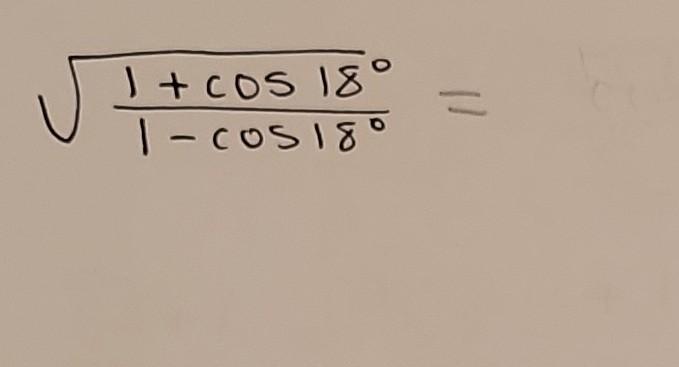 √((1 + cos 18°)/(1 - cos 18°)) =